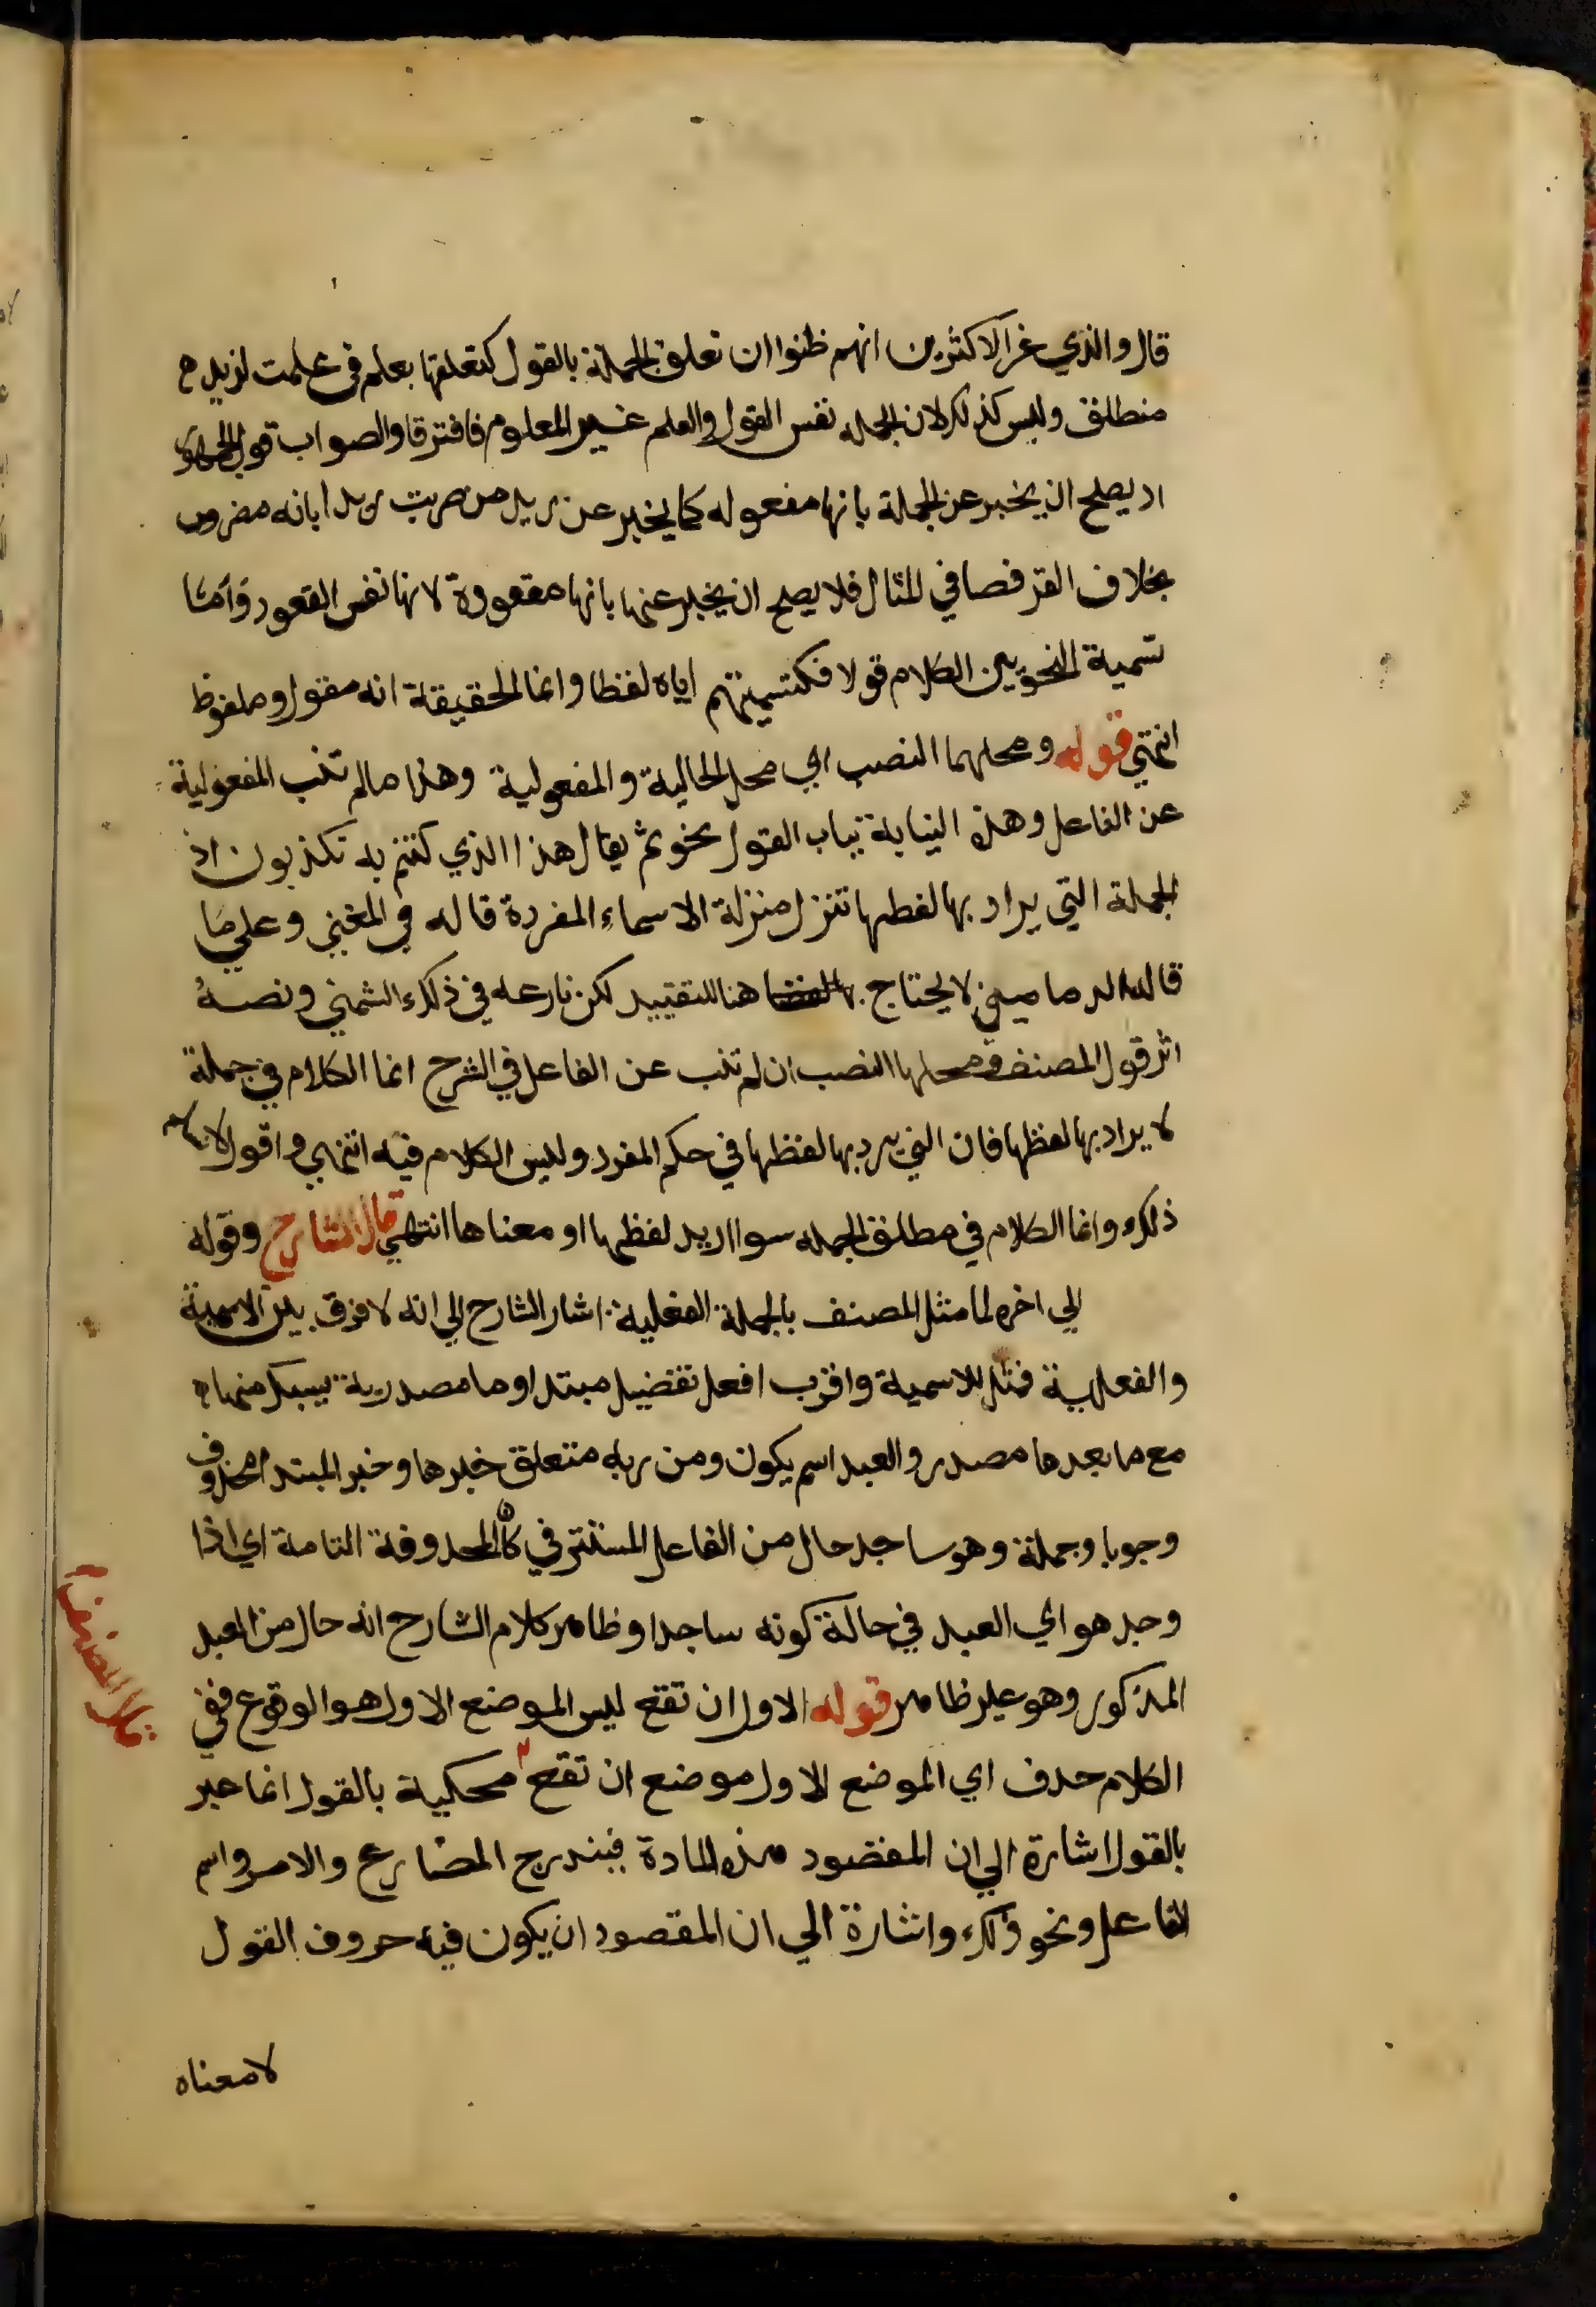 قال والذي غر الاكثرين انهم ظنوا ان تعلق الجملة بالقول كتعلقها بعلم في علمت لزيد
منطلق وليس كذلك لان الجمله نفس القول والعلم غير المعلوم فافترقا والصواب قول الجمهور
اد يصلح ان يخبر عن الجملة بانها مفعوله كما يخبر عن زيد من ضربت زيدا بانه مضروب
بخلاف القرفصا في المثال فلا يصلح ان يخبر عنها بانها مقعودة لانها نفس القعود وَأَمَّا
تسمية النحويين الكلام قولا فكتسميتهم اياه لفظا وانما الحقيقة انه مقول وملفوظ
انتهي قوله ومحلهما النصب اي محل الحالية والمفعولية وهذا مالم تنب المفعولية
عن الفاعل وهذه النيابة بباب القول نحو ثم يقال هذا الذي كنتم به تكذبون اذ
الجملة التي يراد بها لفظها تنزل منزلة الاسماء المفردة قاله في المغني وعلي مَا
قاله الدماميني لا يحتاج هنا للتقييد لكن نازعه في ذلك الشمني ونصه
اثر قول المصنف ومحلها النصب ان لم تنب عن الفاعل في الشرح انما الكلام في جملة
لا يراد بها لفظها فان التي يرد بها لفظها في حكم المفرد وليس الكلام فيه انتهي واقول لا نسلم
ذلك وانما الكلام في مطلق الجمله سوا اريد لفظها او معناها انتهي قال الشارح وقوله
الي اخره لما مثل المصنف بالجملة الفعلية اشار الشارح الي انه لا فرق بين الاسمية
والفعلية فمثل للاسمية واقرب افعل تفضيل مبتدا وما مصدرية يسبك منها
مع ما بعدها مصدر والعبد اسم يكون ومن ربه متعلق خبرها وخبر المبتدا محذوف
وجوبا وجملة وهو ساجد حال من الفاعل المستتر في كان المحدوفة التامة اي اذا
وجد هو اي العبد في حالة كونه ساجدا وظاهر كلام الشارح انه حال من العبد
المذكور وهو علي ظاهر قوله الاول ان تقع ليس الموضع الاول هو الوقوع ففي
الكلام حدف اي الموضع الاول موضع ان تقع محكية بالقول انما عبر
بالقول اشارة الي ان المقصود هذه المادة فيندرج المضارع والامر واسم
الفاعل ونحو ذلك واشارة الي ان المقصود ان يكون فيه حروف القول
لا معناه
قال المصنف